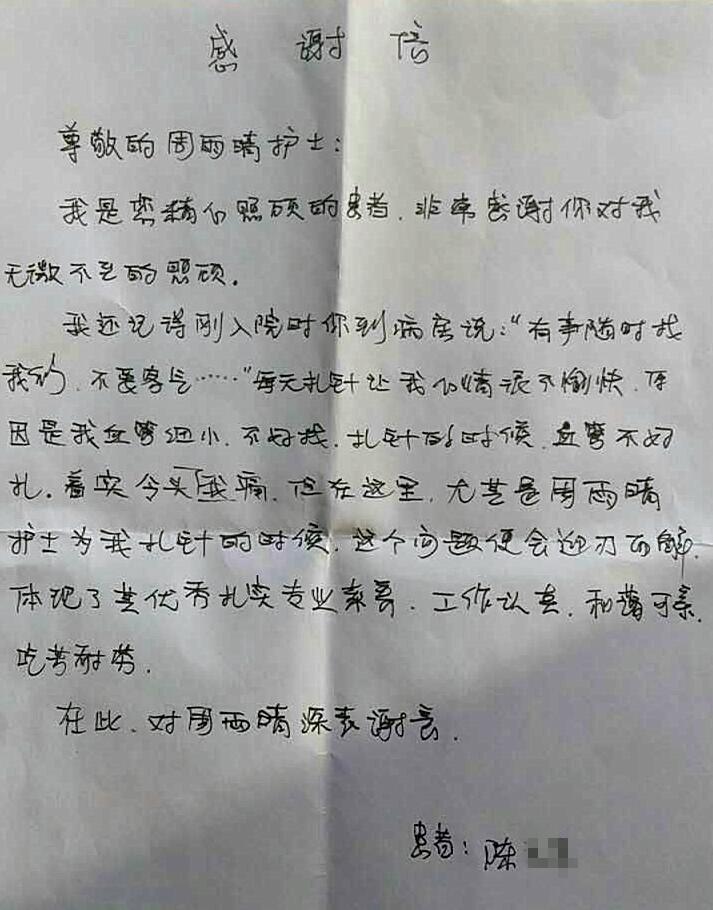 感谢信
尊敬的周雨晴护士:
我是您精心照顾的患者,非常感谢你对我
无微不至的照顾。
我还记得刚入院时你到病房说:“有事随时找
我们,不要客气……”每天扎针让我心情很不愉快,原
因是我血管细小,不好找,扎针的时候,血管不好
扎,着实令我头痛,但在这里,尤其是周雨晴
护士为我扎针的时候,这个问题便会迎刃而解,
体现了其优秀扎实专业素养,工作认真,和蔼可亲,
吃苦耐劳。
在此,对周雨晴深表谢意。
患者:陈